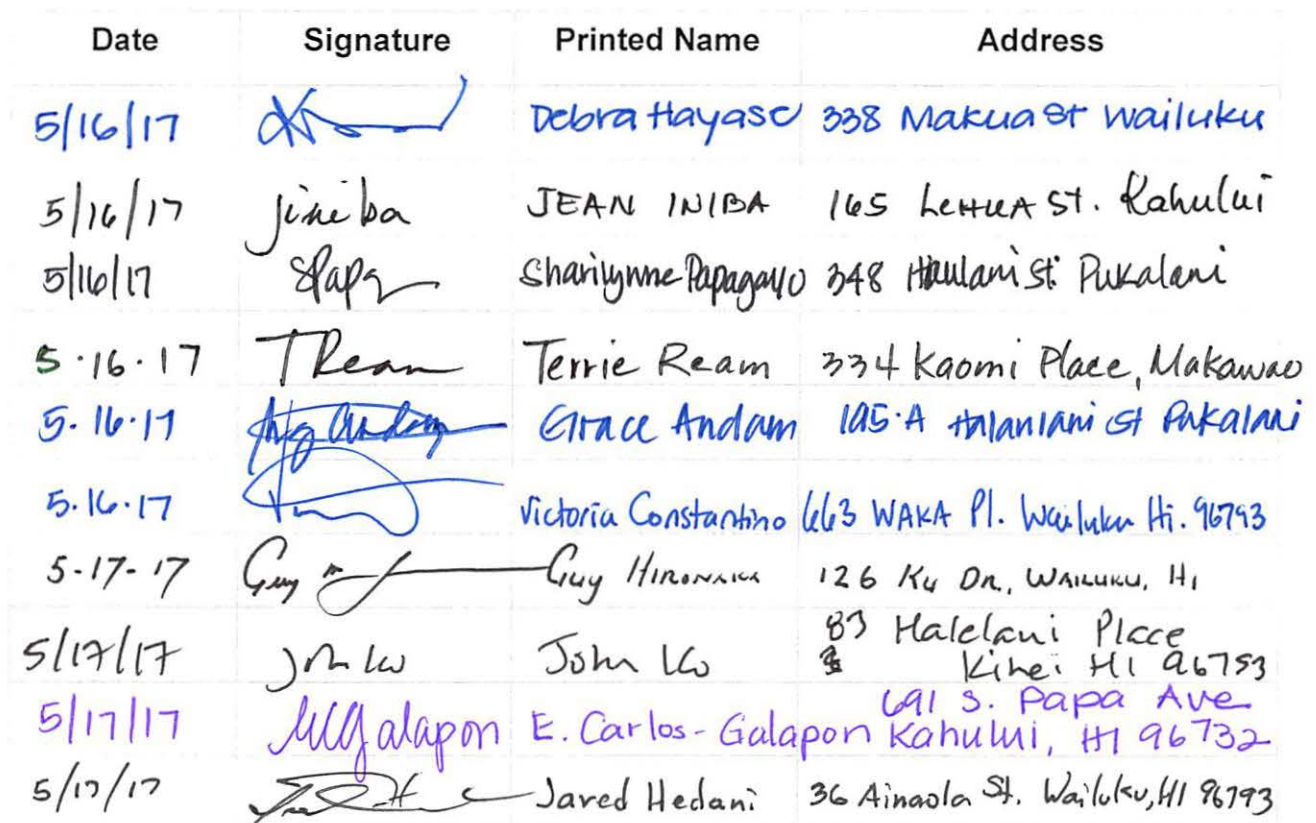 Date Signature Printed Name Address
5/16/17 Debra Hayase 338 Makua St Wailuku
5/16/17 jiniba JEAN INIBA 165 LEHUA ST. Kahului
5/16/17 SPapa Sharilynne Papagayo 348 Haulani St. Pukalani
5.16.17 TReam Terrie Ream 334 Kaomi Place, Makawao
5.16.17 Andam Grace Andam 195.A St Pukalani
5.16.17 Victoria Constantino 663 WAKA Pl. Wailuku Hi. 96793
5-17-17 Guy Guy HIRONAKA 126 Ku DR., WAILUKU, HI
83 Halelani Place
5/17/17 John Ko John Ko Kihei HI 96753
691 S. Papa Ave
5/17/17 Galapon E. Carlos-Galapon Kahului, HI 96732
5/17/17 Jared Hedani 36 Ainaola St. Wailuku, HI 96793